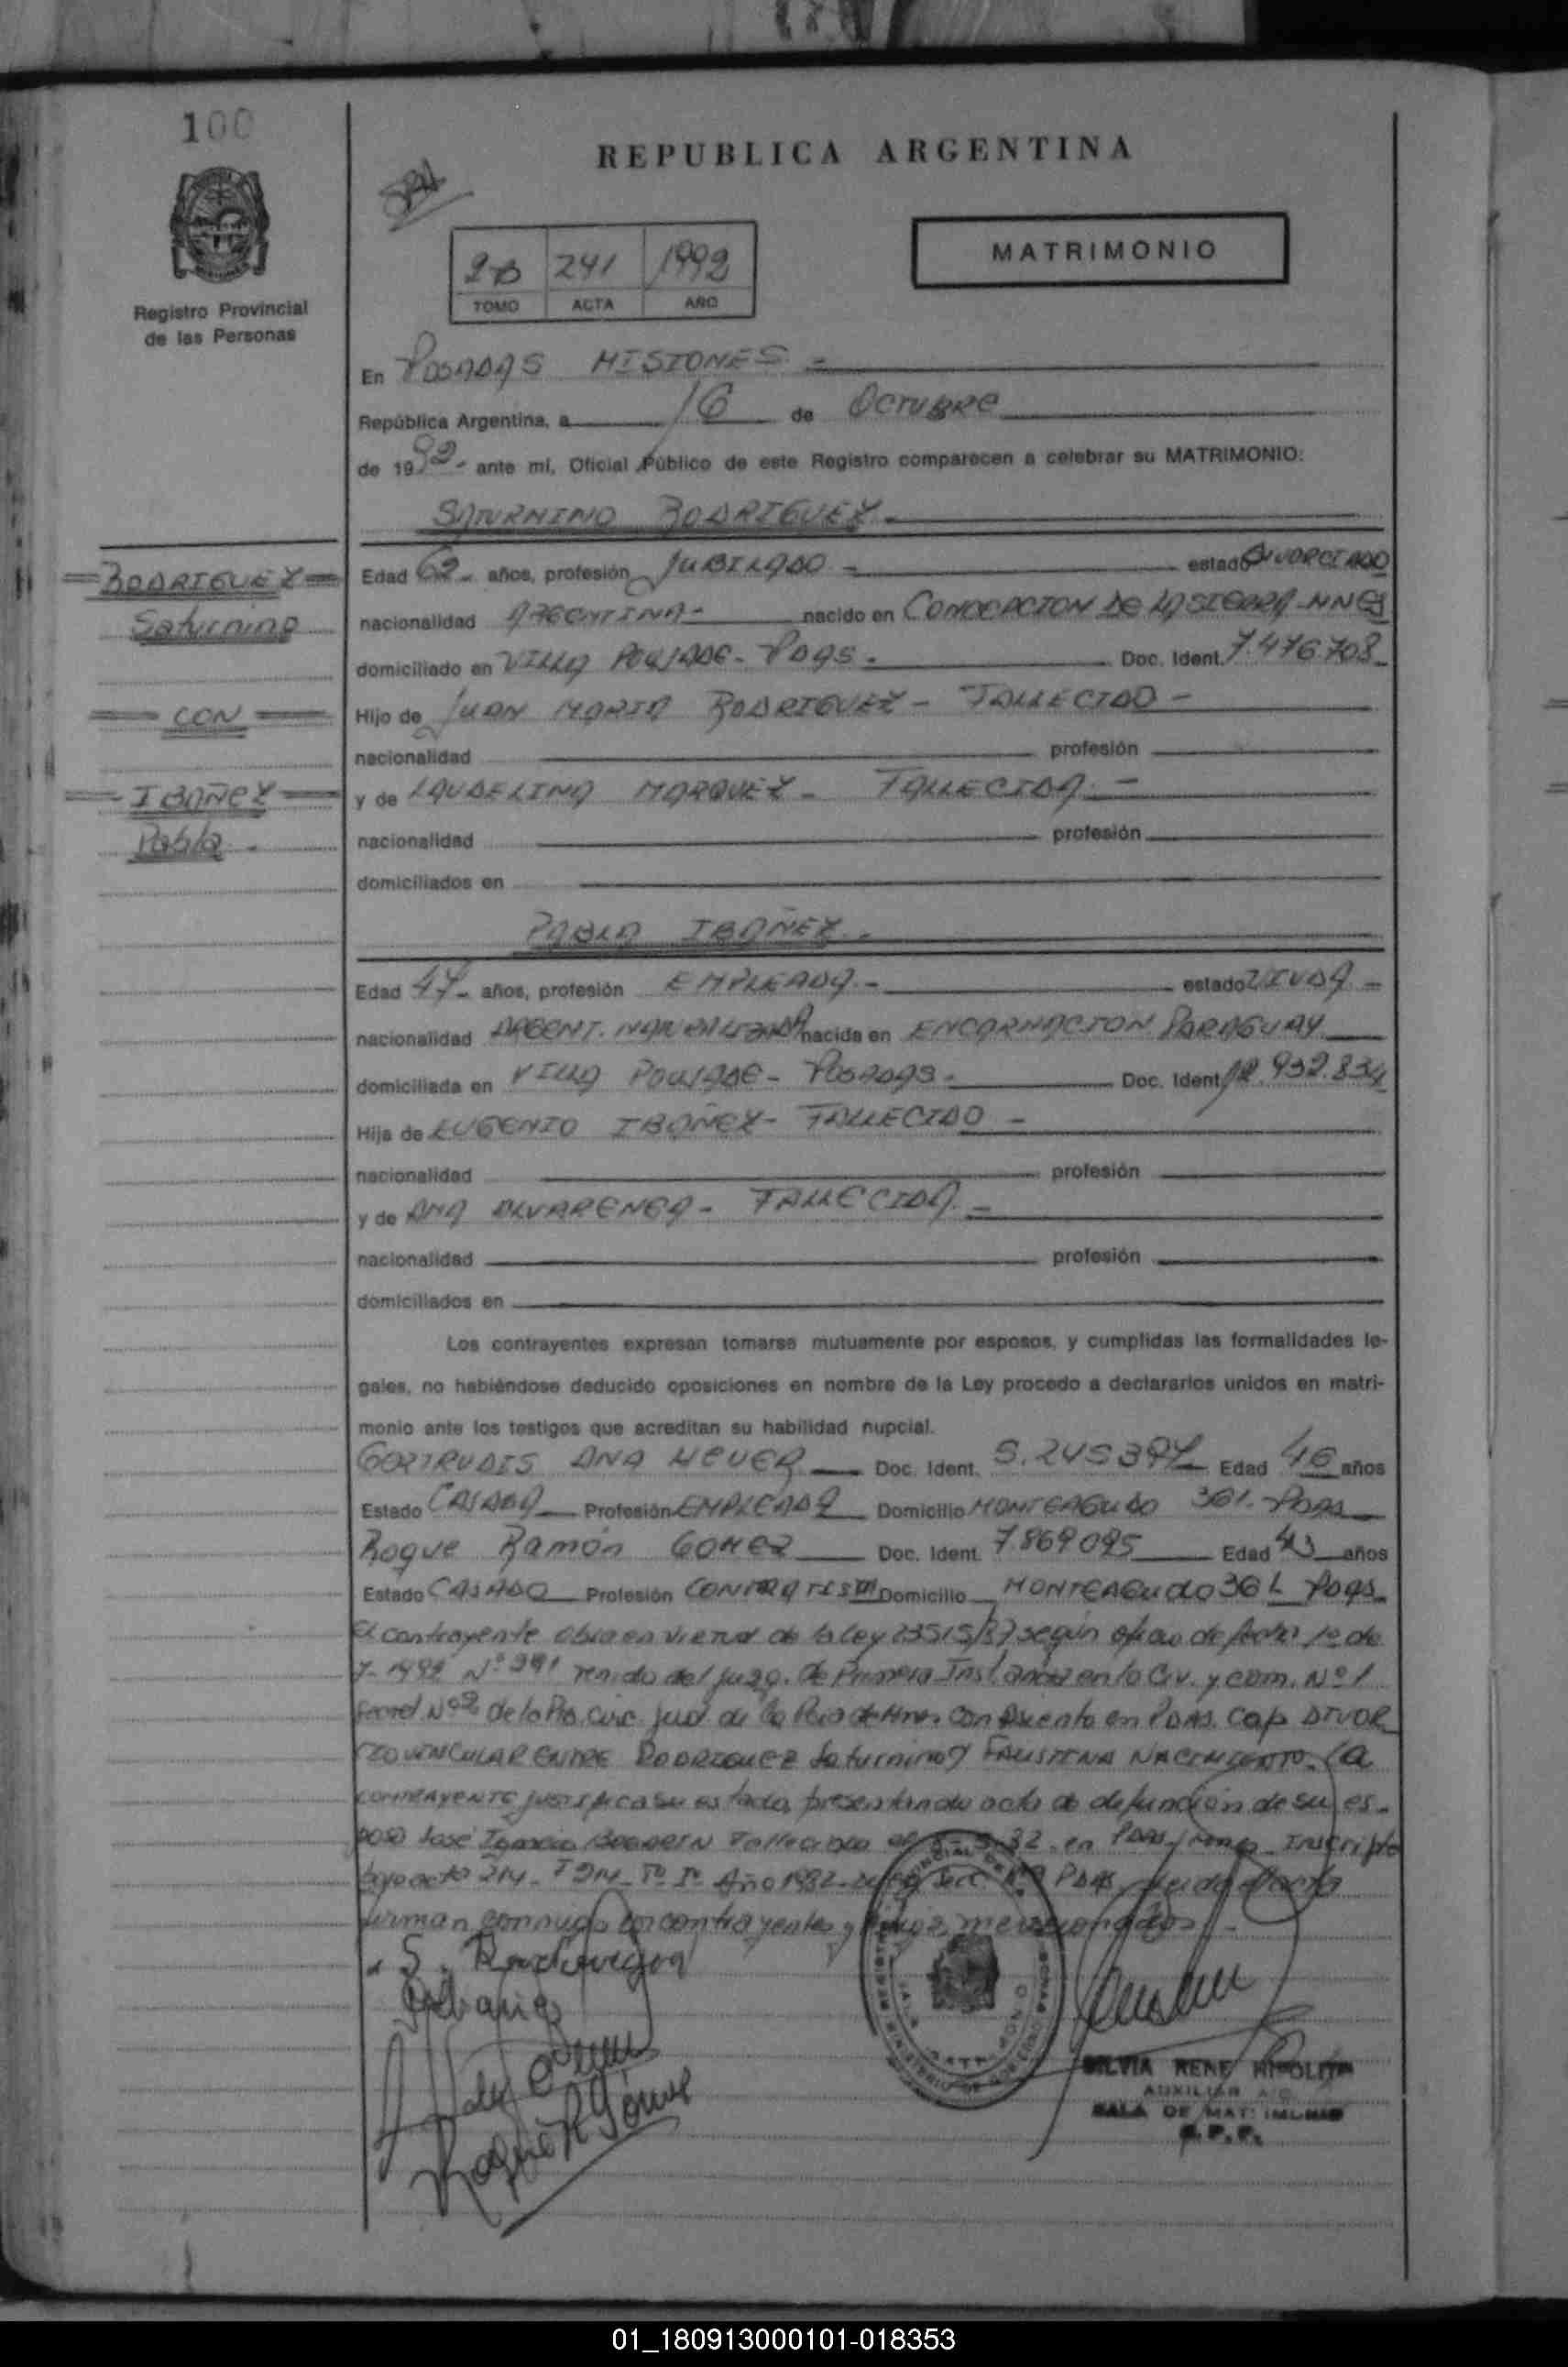 100
REPUBLICA ARGENTINA
241 1992
TOMO ACTA AÑO
MATRIMONIO
Registro Provincial
de las Personas
En POSADAS MISIONES =
República Argentina, a 16 de Octubre
de 1992- ante mí, Oficial Público de este Registro comparecen a celebrar su MATRIMONIO:
SATURNINO RODRIGUEZ
Edad 62- años, profesión JUBILADO - estado DIVORCIADO
nacionalidad ARGENTINA- nacido en CONCEPCION DE LA SIERRA-MNES
domiciliado en VILLA POUJADE- PDAS. Doc. Ident. 7.476.708
Hijo de JUAN MARIA RODRIGUEZ - FALLECIDO -
nacionalidad profesión
y de LAUDELINA MARQUEZ - FALLECIDA. -
nacionalidad profesión
domiciliados en
=RODRIGUEZ=
Saturnino
= CON =
= IBAÑEZ =
Pabla.
PABLA IBAÑEZ.
Edad 47- años, profesión EMPLEADA.- estado VIUDA.-
nacionalidad ARGENT. NATURALIZADA nacida en ENCARNACION PARAGUAY
domiciliada en VILLA POUJADE- POSADAS. Doc. Ident. 12.932.834
Hija de EUGENIO IBAÑEZ- FALLECIDO -
nacionalidad profesión
y de ANA ALVARENGA- FALLECIDA. -
nacionalidad profesión
domiciliados en
Los contrayentes expresan tomarse mutuamente por esposos, y cumplidas las formalidades le-
gales, no habiéndose deducido oposiciones en nombre de la Ley procedo a declararlos unidos en matri-
monio ante los testigos que acreditan su habilidad nupcial.
GERTRUDIS ANA Doc. Ident. 5.245.394 Edad 46 años
Estado CASADA Profesión EMPLEADA Domicilio MONTEAGUDO 361- PDAS
Roque Ramón GOMEZ Doc. Ident. 7.869.095 Edad 43 años
Estado CASADO Profesión CONTRATISTA Domicilio MONTEAGUDO 361 Pdas.
El contrayente en virtud de la Ley 23515/87 según oficio de fecha 1º de
7-1992 Nº 391 venido del juzg. de Primera Instancia en lo Civ. y com. Nº 1
Secret. Nº2 de la Circ. Jud. de la Pcia de Mnes. con Asiento en PDAS. Cap DIVOR
CIO VINCULAR ENTRE RODRIGUEZ Saturnino y FAUSTINA NACIMIENTO. La
CONTRAYENTE justifica su estado, presentando acta de defunción de su es-
poso José Ignacio BOGARIN Fallecido el en PDAS Mnes. Inscripta
bajo acta 214- Tº Iº Año 1982- Secc. PDAS. Leida el acta
firman conmigo los contrayentes y testigos mencionados.-
S. Rodriguez
Roque R Gómez
SILVIA RENE HIPOLITA
AUXILIAR
SALA DE MATRIMONIO
R. P. P.
01_180913000101-018353